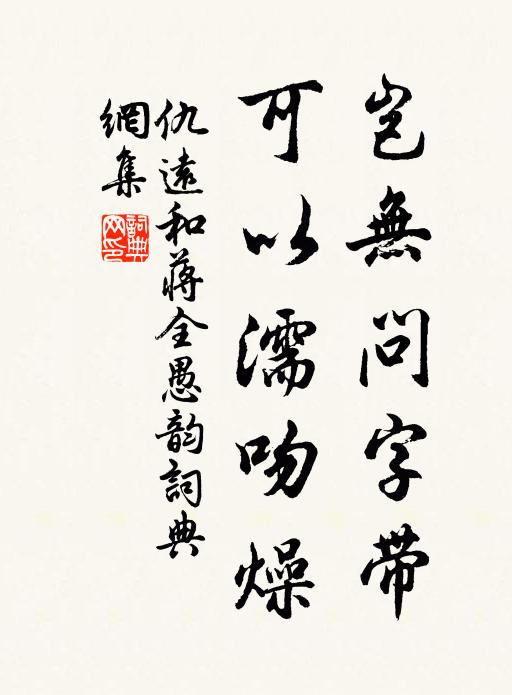 豈無問字帶
可以濡吻燥
仇遠和蔣全愚韵詞典
網集
詞典網印